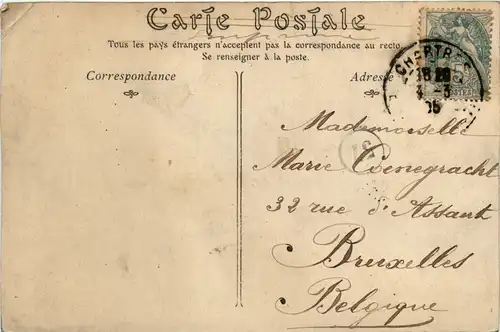 Carte Postale
Tous les pays étrangers n'acceptent pas la correspondance au recto.
Se renseigner à la poste.
Correspondance
Adresse
CHARTRES
18 20
4 - 3
05
POSTES
51
Mademoiselle
Marie Coenegracht
32 rue d'Assaut
Bruxelles
Belgique